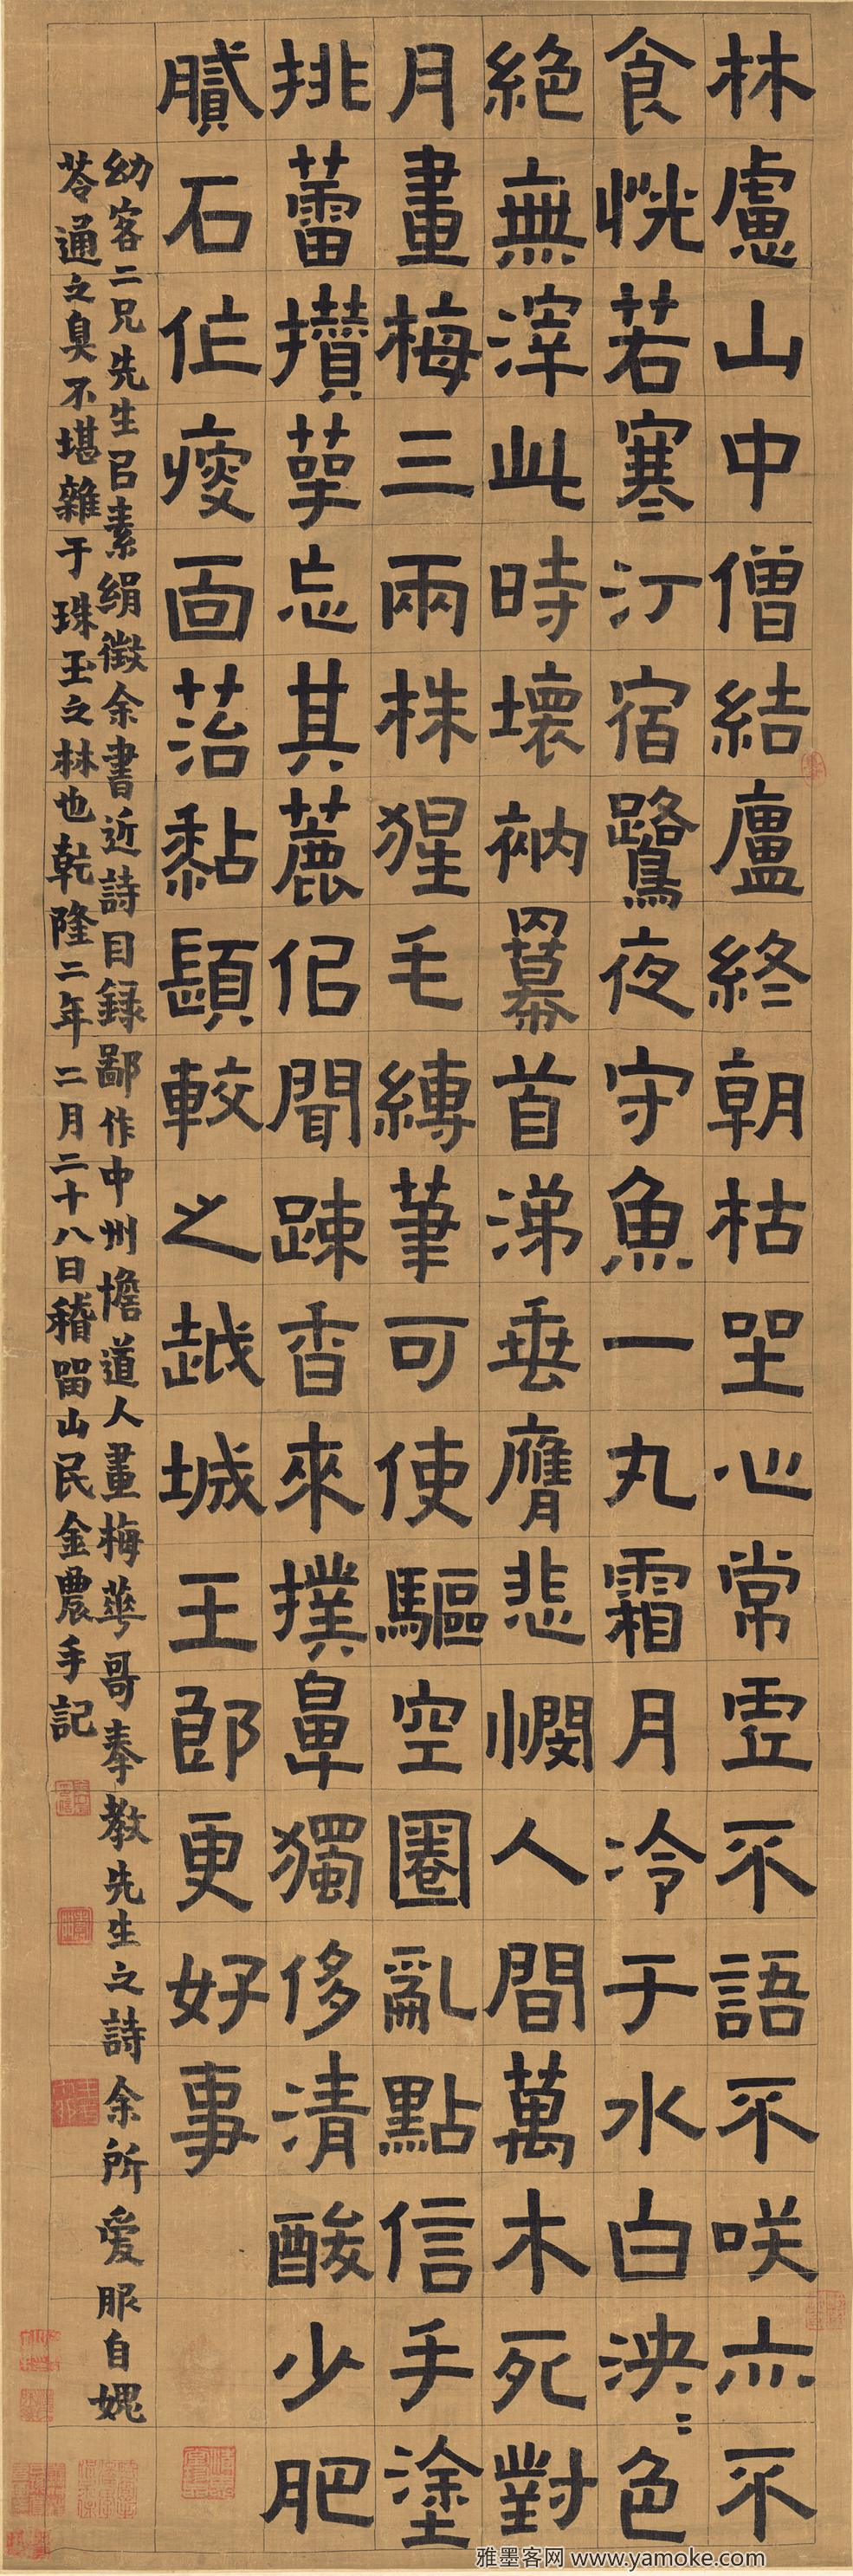 林慮山中僧結廬終朝枯坐心常虛不語不咲亦不
食恍若寒汀宿鷺夜守魚一丸霜月冷于水白泱〻色
絕無滓此時壞衲羃首涕垂膺悲憫人間萬木死對
月畫梅三兩株猩毛縛筆可使驅空圈亂點信手塗
挑蕾攢萼忘其麄但聞踈香來撲鼻獨侈清酸少肥
膩石作瘦面苔黏顋較之越城王郎更好事
幼客二兄先生以素絹徵余書近詩目録鄙作中州憺道人畫梅華哥奉教先生之詩余所愛服自媿
苓通之臭不堪雜于珠玉之林也乾隆二年二月二十八日稽留山民金農手記
雅墨客网 www.yamoke.com